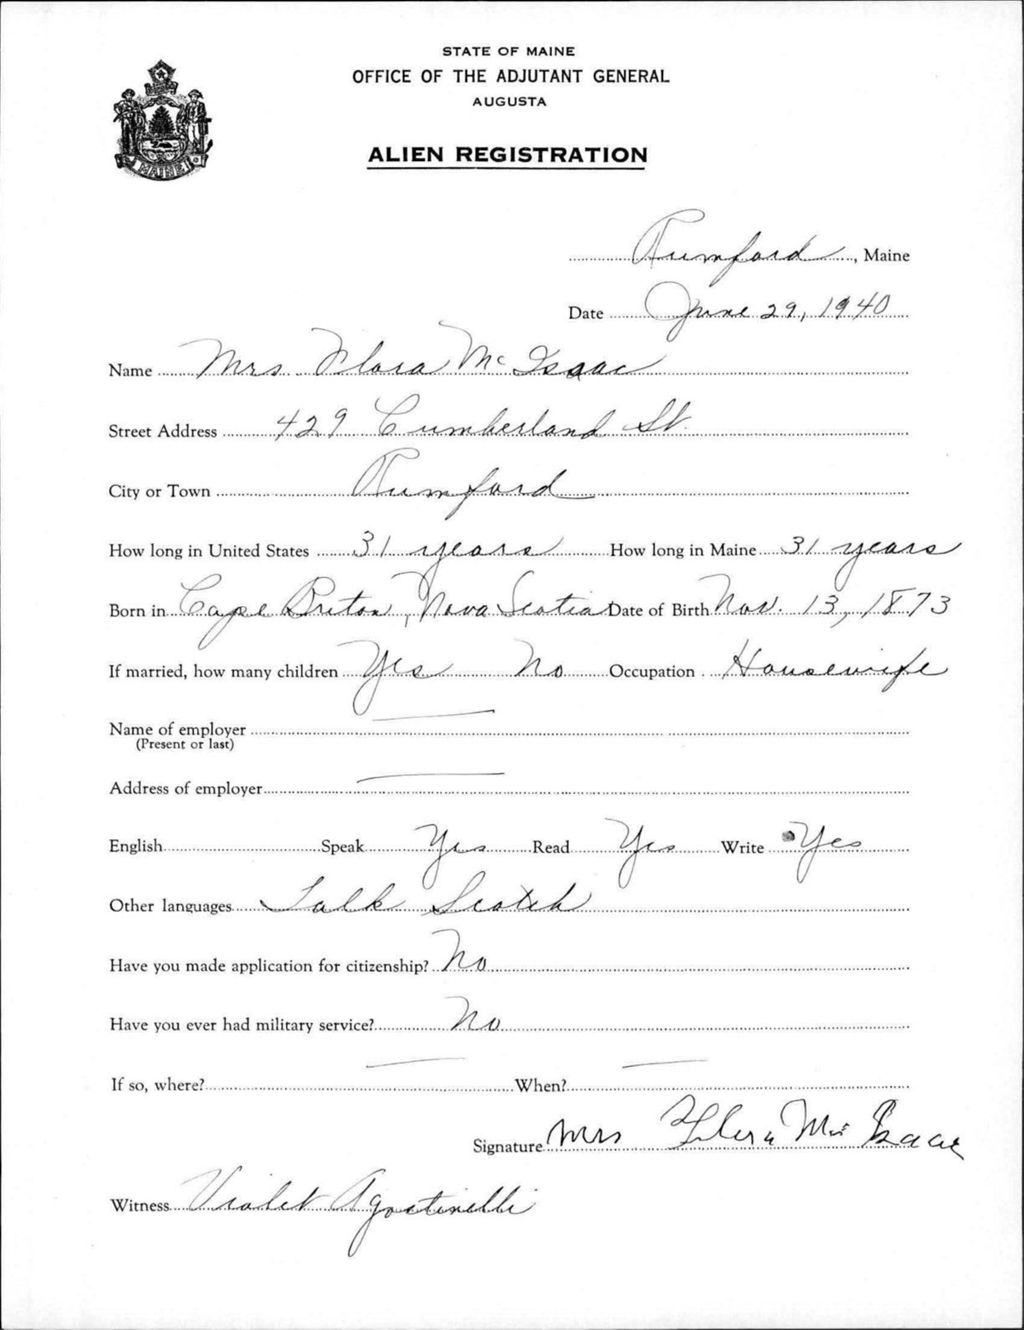 STATE OF MAINE
OFFICE OF THE ADJUTANT GENERAL
AUGUSTA
ALIEN REGISTRATION
MAINE
Rumford, Maine
Date June 29, 1940
Name Mrs. Flora McIsaac
Street Address 429 Cumberland St.
City or Town Rumford
How long in United States 31 years How long in Maine 31 years
Born in Cape Breton, Nova Scotia Date of Birth Nov. 13, 1873
If married, how many children Yes No Occupation Housewife
Name of employer —
(Present or last)
Address of employer —
English Speak Yes Read Yes Write Yes
Other languages Talk Scotch
Have you made application for citizenship? No
Have you ever had military service? No
If so, where? — When? —
Signature Mrs Flora McIsaac
Witness Violet Agostinelli